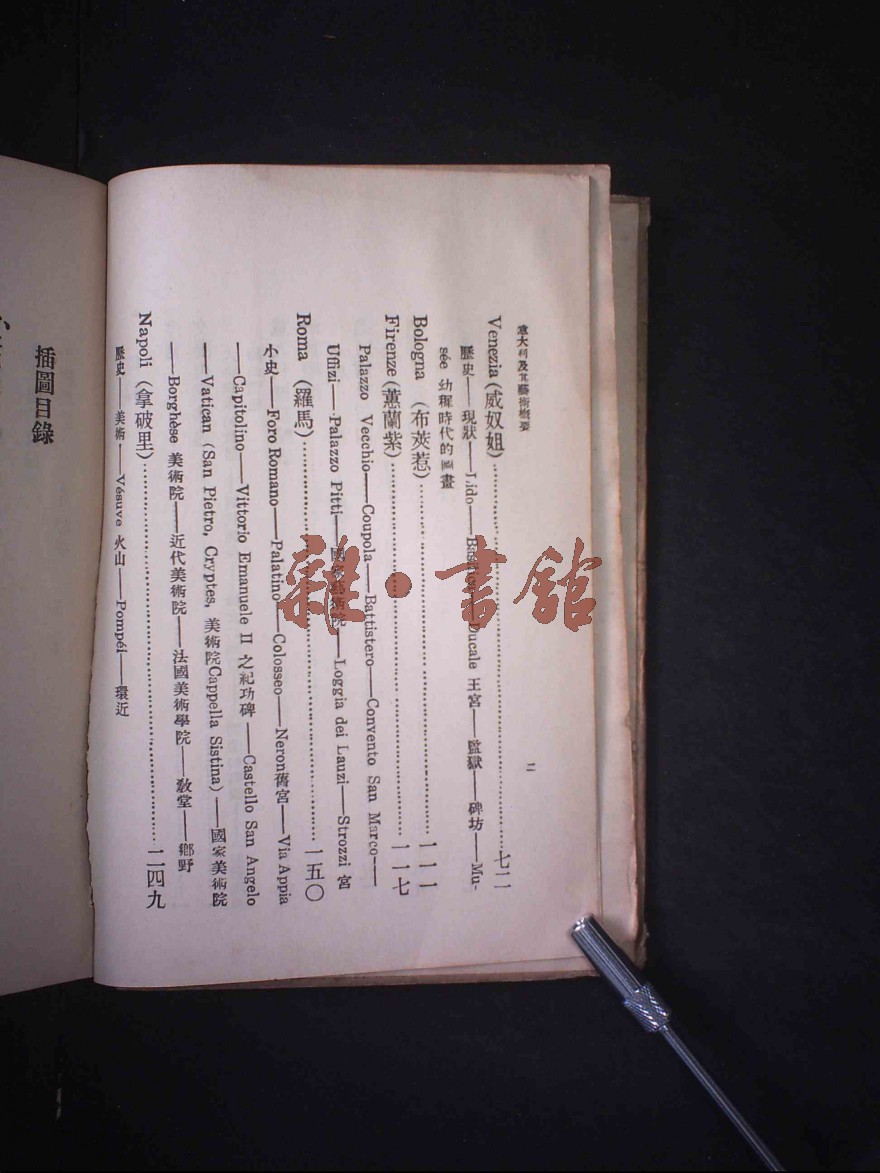 意大利及其藝術概要
二
Venezia (威奴姐)……七二
歷史——現狀——Lido——Basilica——Ducale 王宮——監獄——碑坊——Mu-
sée 幼稺時代的畫
Bologna (布莢惹)……一一一
Firenze (蕙蘭紫)……一一七
Palazzo Vecchio——Coupola——Battistero——Convento San Marco——
Uffizi——Palazzo Pitti——Loggia dei Lauzi——Strozzi 宮
Roma (羅馬)……一五〇
小史——Foro Romano——Palatino——Colosseo——Neron舊宮——Via Appia
——Capitolino——Vittorio Emanuele II 之紀功碑——Castello San Angelo
——Vatican (San Pietro, Cryptes, 美術院Cappella Sistina)——國家美術院
——Borghèse 美術院——近代美術院——法國美術學院——教堂——鄉野
Napoli (拿破里)……二四九
歷史——美術——Vésuve 火山——Pompéi——環近
插圖目錄
雜·書館